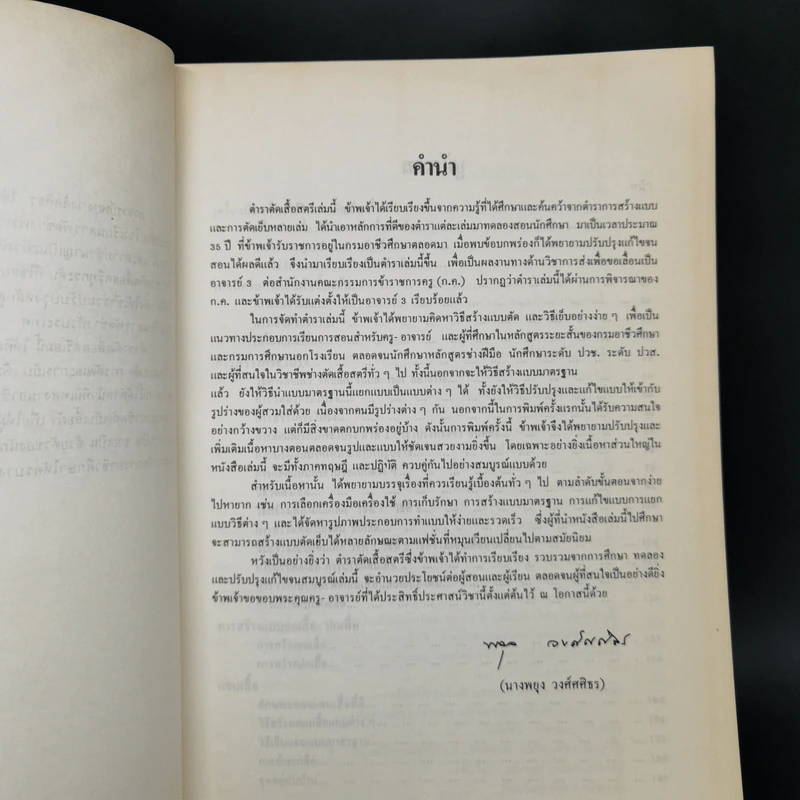 คำนำ
ตำราตัดเสื้อสตรีเล่มนี้ ข้าพเจ้าได้เรียบเรียงขึ้นจากความรู้ที่ได้ศึกษาและค้นคว้าจากตำราการสร้างแบบ
และการตัดเย็บหลายเล่ม ได้นำเอาหลักการที่ดีของตำราแต่ละเล่มมาทดลองสอนนักศึกษา มาเป็นเวลาประมาณ
35 ปี ที่ข้าพเจ้ารับราชการอยู่ในกรมอาชีวศึกษาตลอดมา เมื่อพบข้อบกพร่องก็ได้พยายามปรับปรุงแก้ไขจน
สอนได้ผลดีแล้ว จึงนำมาเรียบเรียงเป็นตำราเล่มนี้ขึ้น เพื่อเป็นผลงานทางวิชาการส่งเพื่อขอเลื่อนเป็น
อาจารย์ 3 ต่อสำนักงานคณะกรรมการข้าราชการครู (ก.ค.) ปรากฏว่าตำราเล่มนี้ได้ผ่านการพิจารณาของ
ก.ค. และข้าพเจ้าได้รับแต่งตั้งให้เป็นอาจารย์ 3 เรียบร้อยแล้ว
ในการจัดทำตำราเล่มนี้ ข้าพเจ้าได้พยายามคิดหาวิธีสร้างแบบตัด และวิธีเย็บอย่างง่าย ๆ เพื่อเป็น
แนวทางประกอบการเรียนการสอนสำหรับครู-อาจารย์ และผู้ที่ศึกษาในหลักสูตรระยะสั้นของกรมอาชีวศึกษา
และกรมการศึกษานอกโรงเรียน ตลอดจนนักศึกษาหลักสูตรช่างฝีมือ นักศึกษาระดับ ปวช. ระดับ ปวส.
และผู้ที่สนใจในวิชาชีพช่างตัดเสื้อสตรีทั่ว ๆ ไป ทั้งนี้นอกจากจะให้วิธีสร้างแบบมาตรฐาน
แล้ว ยังให้วิธีนำแบบมาตรฐานนี้แยกแบบเป็นแบบต่าง ๆ ได้ ทั้งยังให้วิธีปรับปรุงและแก้ไขแบบให้เข้ากับ
รูปร่างของผู้สวมใส่ด้วย เนื่องจากคนมีรูปร่างต่าง ๆ กัน นอกจากนี้ในการพิมพ์ครั้งแรกนั้นได้รับความสนใจ
อย่างกว้างขวาง แต่ก็มีสิ่งขาดตกบกพร่องอยู่บ้าง ดังนั้นการพิมพ์ครั้งนี้ ข้าพเจ้าจึงได้พยายามปรับปรุงและ
เพิ่มเติมเนื้อหาบางตอนตลอดจนรูปและแบบให้ชัดเจนสวยงามยิ่งขึ้น โดยเฉพาะอย่างยิ่งเนื้อหาส่วนใหญ่ใน
หนังสือเล่มนี้ จะมีทั้งภาคทฤษฎี และปฏิบัติ ควบคู่กันไปอย่างสมบูรณ์แบบด้วย
สำหรับเนื้อหานั้น ได้พยายามบรรจุเรื่องที่ควรเรียนรู้เบื้องต้นทั่ว ๆ ไป ตามลำดับขั้นตอนจากง่าย
ไปหายาก เช่น การเลือกเครื่องมือเครื่องใช้ การเก็บรักษา การสร้างแบบมาตรฐาน การแก้ไขแบบการแยก
แบบวิธีต่าง ๆ และได้จัดหารูปภาพประกอบการทำแบบให้ง่ายและรวดเร็ว ซึ่งผู้ที่นำหนังสือเล่มนี้ไปศึกษา
จะสามารถสร้างแบบตัดเย็บได้หลายลักษณะตามแฟชั่นที่หมุนเวียนเปลี่ยนไปตามสมัยนิยม
หวังเป็นอย่างยิ่งว่า ตำราตัดเสื้อสตรีซึ่งข้าพเจ้าได้ทำการเรียบเรียง รวบรวมจากการศึกษา ทดลอง
และปรับปรุงแก้ไขจนสมบูรณ์เล่มนี้ จะอำนวยประโยชน์ต่อผู้สอนและผู้เรียน ตลอดจนผู้ที่สนใจเป็นอย่างดียิ่ง
ข้าพเจ้าขอขอบพระคุณครู-อาจารย์ที่ได้ประสิทธิ์ประศาสน์วิชานี้ตั้งแต่ต้นไว้ ณ โอกาสนี้ด้วย
(นางพยุง วงศ์ศศิธร)